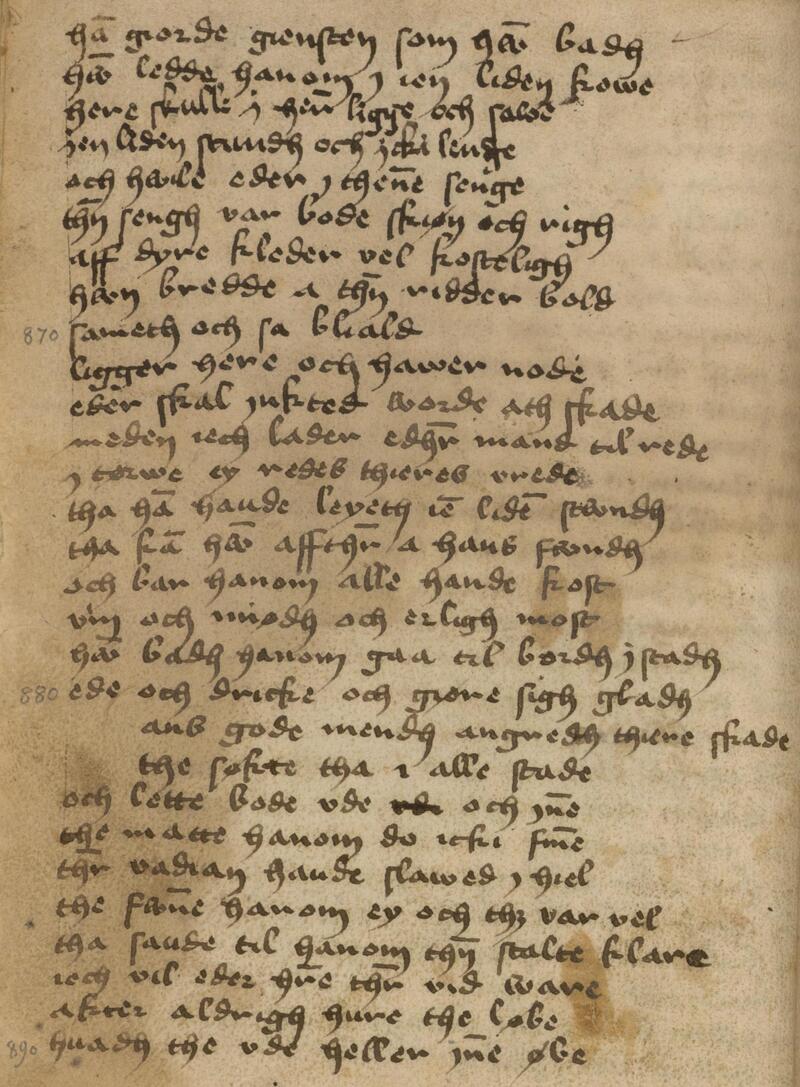 hā giorde giensten som hw̄ badh
hw̄ ledde hanom j ien liden kowe
here skulle j hēr ligge och sowe
jen liden stundh och jcki lenge
och hwile eder j thenne senge
thn̄ sengh var bode skøn och righ
aff dyre kleder vel kosteligh
hwn bredde a thn̄ ridder bold
870 sameth och sa bliald
ligger here och hawer node
eder skal jnkted worde ath skade
meden iech lader edhr̄ mand til rede
j tørwe ey redes thieres vrede
tha hā haude leyeth iē lidē stwndh
tha kā hw̄ affthr̄ a hans fwndh
och bar hanom alle hande kost
vin och miødh och erligh most
hw̄ badh hanom gaa til bordh j stadh
880 ede och dricke och giøre sigh gladh
ans gode mendh angredh thiere skade
the søkte tha i alle stade
och lette bode vde och jn̄e
the matte hanom do icki fin̄e
thr̄ vadian haude slawed j hiel
the fwn̄e hanom ey och thʒ var vel
tha saude til hanom thn̄ stalte klare
iech vil eder hr̄e thr̄ vid ware
akter aldrigh hure the løbe
890 huadh the vde heller jn̄e øbe